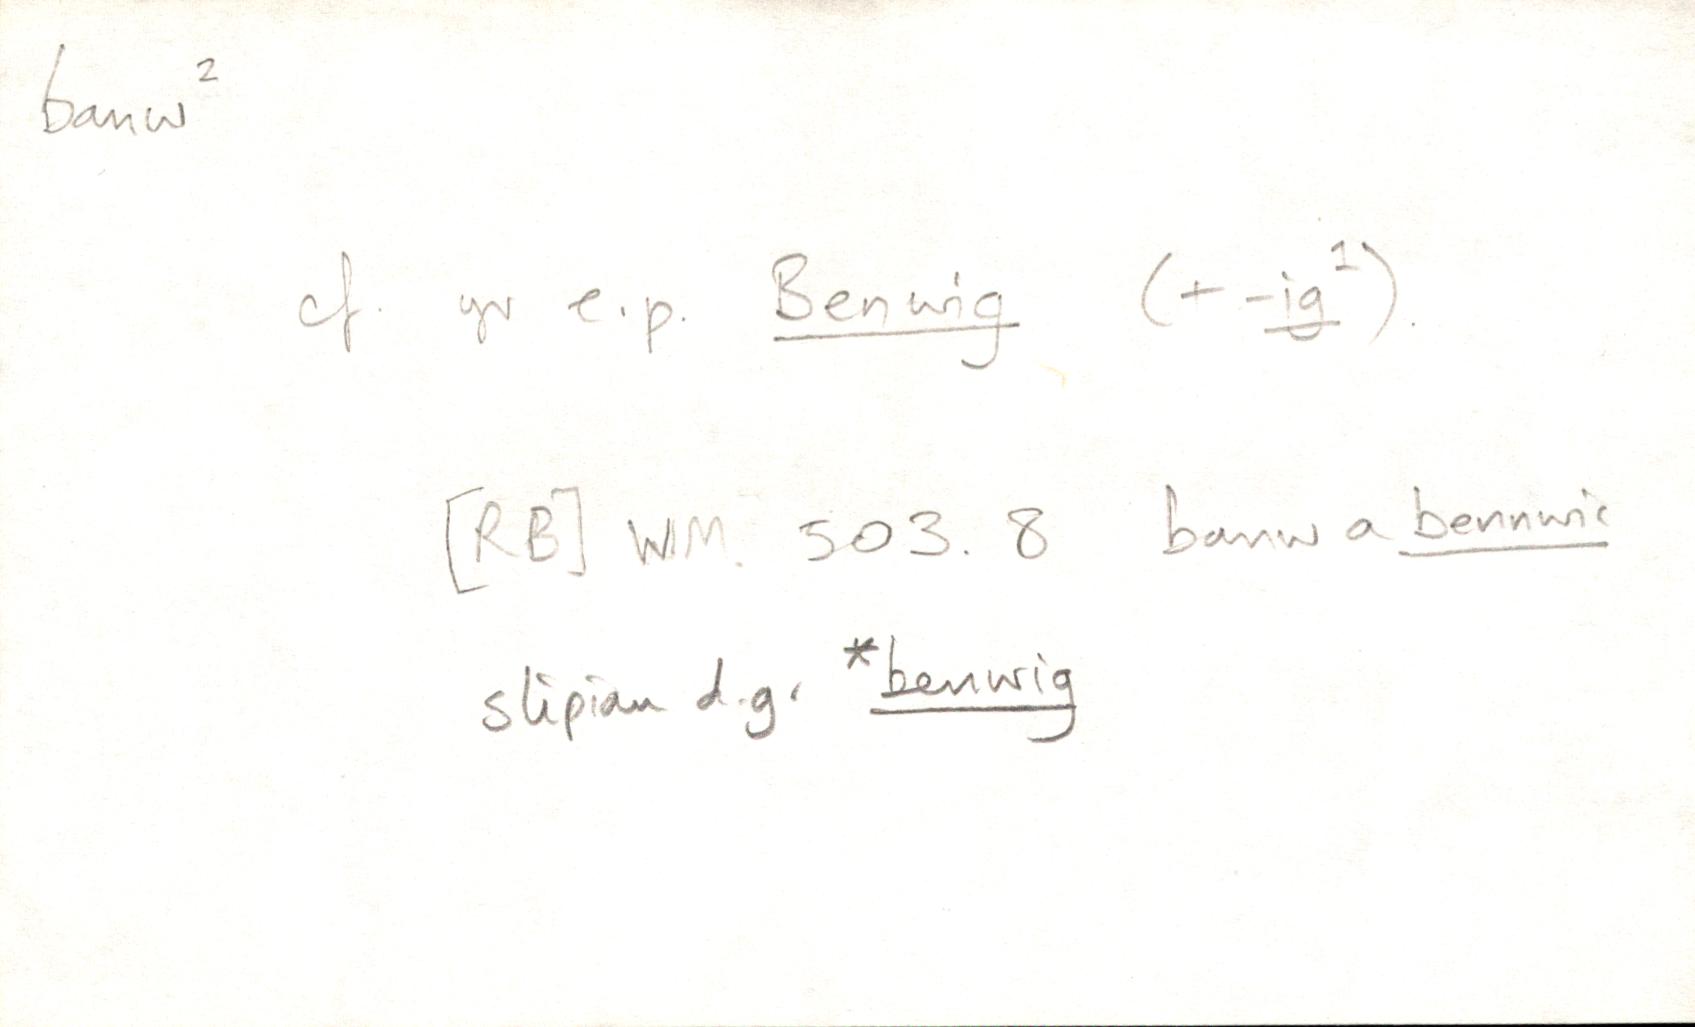 banw²
cf. yr e.p. Benwig (+ -ig¹).
[RB] WM. 503. 8 banw a bennwic
slipian d.g. *benwig